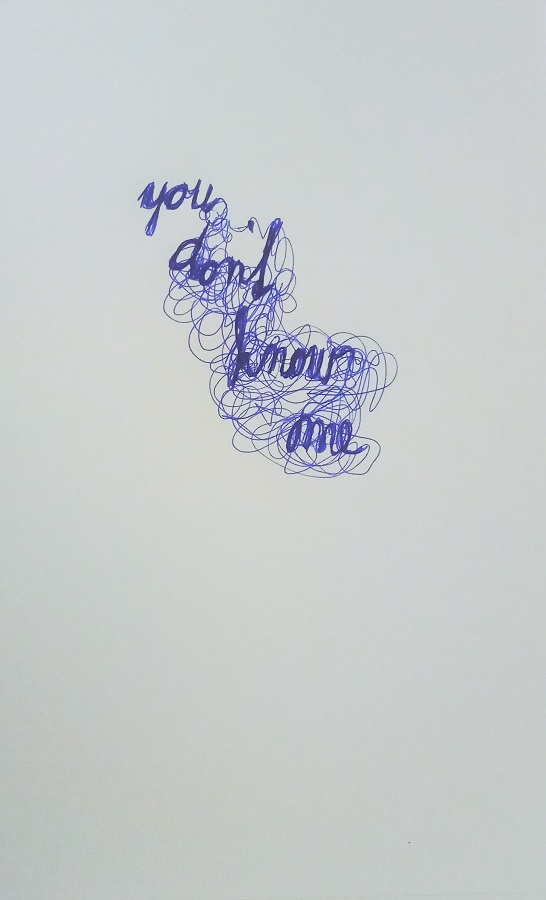 you
don't
know
me